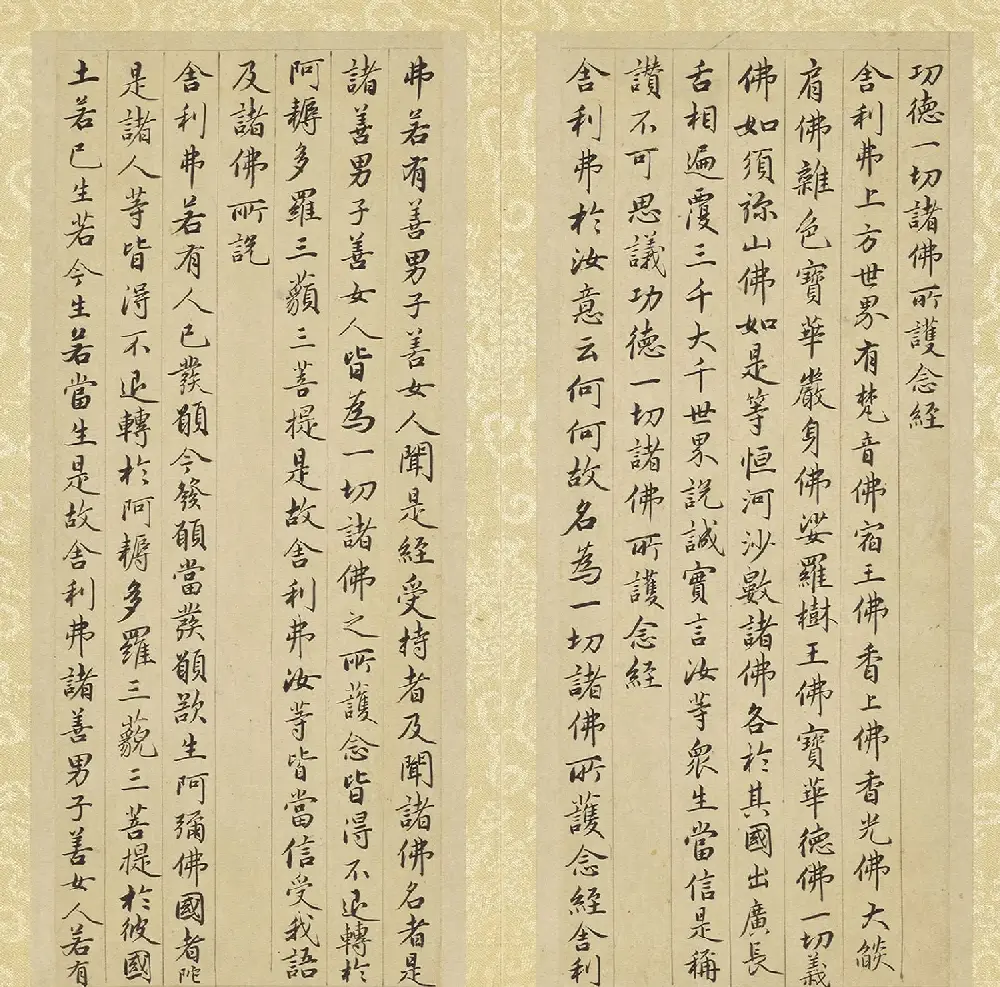 功德一切諸佛所護念經
舍利弗上方世界有梵音佛宿王佛香上佛香光佛大燄
肩佛雜色寶華嚴身佛娑羅樹王佛寶華德佛一切義
佛如須彌山佛如是等恒河沙數諸佛各於其國出廣長
舌相遍覆三千大千世界說誠實言汝等衆生當信是稱
讚不可思議功德一切諸佛所護念經
舍利弗於汝意云何何故名為一切諸佛所護念經舍利
弗若有善男子善女人聞是經受持者及聞諸佛名者是
諸善男子善女人皆為一切諸佛之所護念皆得不退轉於
阿耨多羅三藐三菩提是故舍利弗汝等皆當信受我語
及諸佛所說
舍利弗若有人已發願今發願當發願欲生阿彌佛國者陀
是諸人等皆得不退轉於阿耨多羅三藐三菩提於彼國
土若已生若今生若當生是故舍利弗諸善男子善女人若有